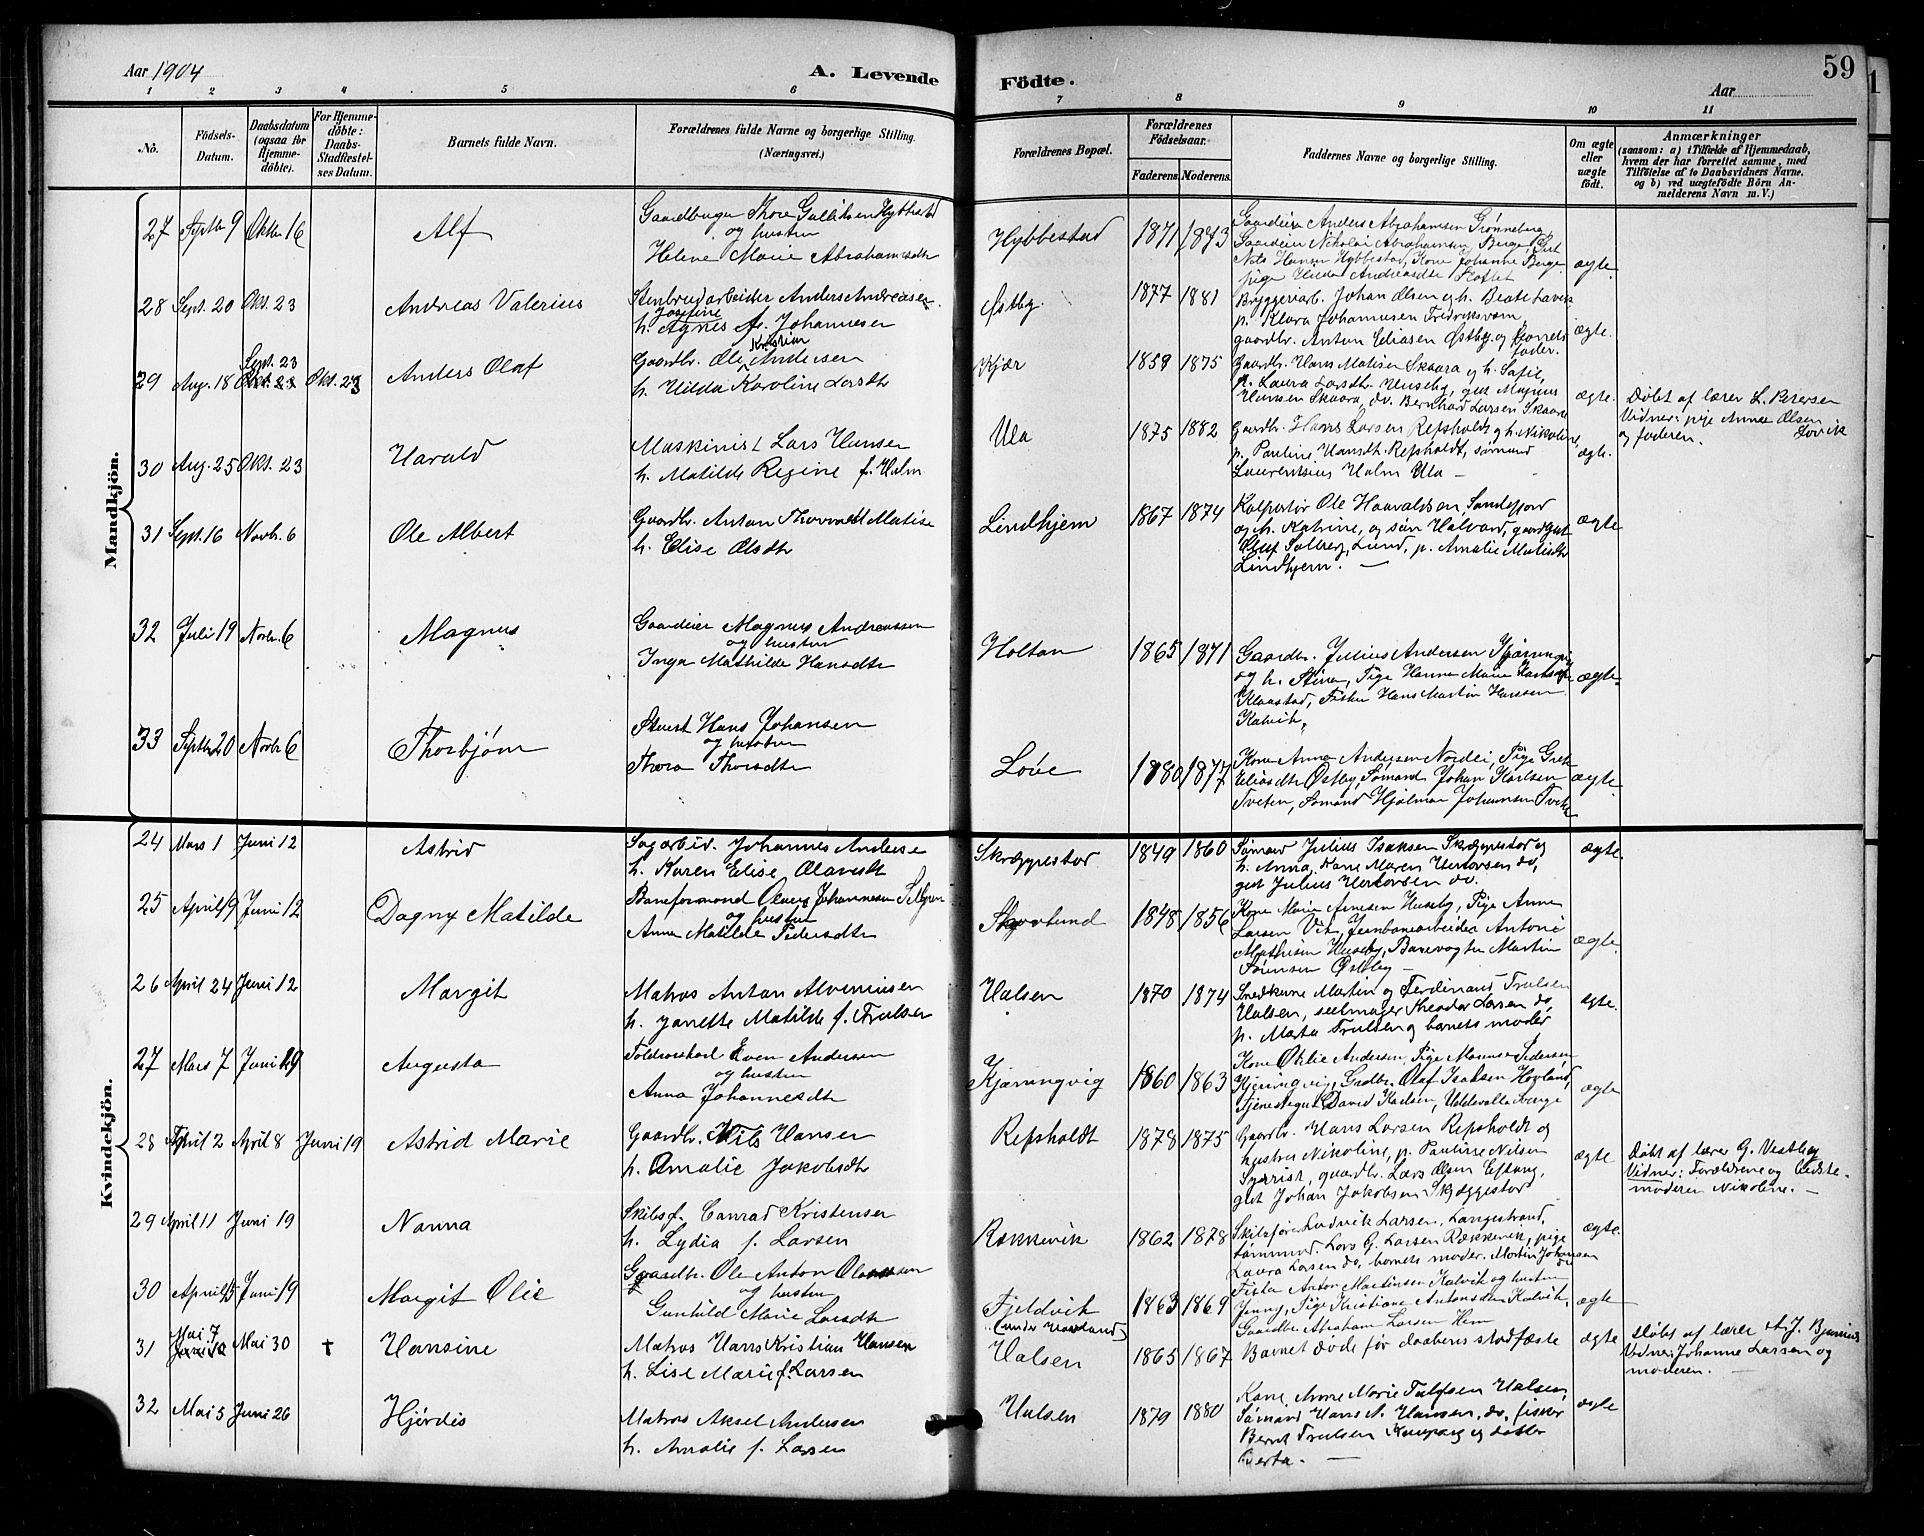 Aar 1904
A. Levende
Födte.
59
Aar
1 2 3 4 5 6 7 8 9 10 11
No.
Födsels-Datum.
Daabsdatum (ogsaa for Hjemme-döbte).
For Hjemme-döbte: Daabs-Stadfæstel-ses Datum.
Barnets fulde Navn.
Forældrenes fulde Navne og borgerlige Stilling.
(Næringsvei.)
Forældrenes Bopæl.
Forældrenes Födselsaar.
Faderens. Moderens.
Faddernes Navne og borgerlige Stilling.
Om ægte eller uægte födt.
Anmærkninger
(saasom: a) i Tilfælde af Hjemmedaab, hvem der har forrettet samme, med Tilföielse af to Daabsvidners Navne, og b) ved uægtefödte Börn An-melderens Navn m. V.)
Mandkjön.
27 Septbr 9 Oktbr 16 Alf
Gaardbruger Thore Gulliksen Hybbestad
og hustru
Helene Marie Abrahamsdtr
Hybbestad 1871 1873
Gaardeier Anders Abrahamsen Grønneberg,
Gaardeier Nikolai Abrahamsen Berge, Gut
Nils Hansen Hybbestad, Kone Johanne Berge
pige Hilda Andreasdtr
ægte.
28 Sept. 20 Okt. 23 Andreas Valerius
Stenbrudarbeider Anders Andreasen
Josefine
h. Agnes f. Johannesen
Østby. 1877 1881
Bryggeriarb. Johan Olsen og h. Beate
p. Klara Johannesen Fredriksværn,
gaardbr. Anton Eliasen Østby og barnets
fader.
ægte.
29 Aug. 18 Sept. 23 Okt. 23 Okt. 23 Anders Olaf
Kristian
Gaardbr. Ole Andersen
h. Hilda Karoline Larsdtr
Kjær 1859 1875
Gaardbr. Hans Matisen Skaara og h. Sofie,
p. Laura Larsdtr Huseby, gut Magnus
Hansen Skaara, do. Bernhard Larsen Skaara
ægte.
Døbt af lærer L. Petersen
Vidner: pige Anna Olsen
og faderen.
30 Aug. 25 Okt. 23 Harald
Maskinist Lars Hansen
h. Matilde Regine f. Holm
Ula 1875 1882
Gaardbr. Hans Larsen Refsholdt og h. Nikoline,
p. Pauline Hansdtr Refsholdt, sømand
Laurentsius Holm Ula —
ægte.
31 Sept. 16 Novb. 6 Ole Albert
Gaardbr. Anton Thorvald Matisen
h. Elise Olsdtr
Lindhjem 1867 1874
Kolportør Ole Haavaldsen, Sandefjord
og h. Katrine, og søn Halvard, gaardgut
Olaf Solberg, Lund, p. Amalie Matisdtr
Lindhjem. —
ægte
32 Juli 19 Novbr. 6 Magnus
Gaardeier Magnus Andreassen
og hustru
Inga Mathilde Hansdtr
Holtan 1865 1871
Gaardbr. Julius Andersen Kjæringvig
og h. Stina, Pige Hanna Marie
Klaastad, Fisker Hans Martin Hansen
Kalvik.
ægte.
33 Septbr 20 Novbr 6 Thorbjørn
Stuert Hans Johansen
og hustru
Thora Thorsdtr
Løve 1880 1877
Kone Anna Andersen Nordei, Pige Grete
Eliasdtr Østby, Sømand Johan Karlsen
Tveten, Sømand Hjalmar Johannsen Tveten
ægte.
Kvindekjön.
24 Mars 1 Juni 12 Astrid
Sagarbid. Johannes Andersen
h. Karen Elise Olavsdt
Skræppestad 1849 1860
Sømand Julius Isaksen Skræppestad og
h. Anna, Kone Maren Hertovsen do,
gut Julius Hertovsen do.
ægte.
25 April 19 Juni 12 Dagny Matilde
Baneformand Oluf Johannesen Sel
og hustru
Anna Matilde Pedersdtr
Skovlund 1848 1856
Kone Marie Arnesen Huseby, Pige Anna
Larsen Vik, Jernbanearbeider Antoni
Mathisen Huseby, Banevogter Martin
Sørensen Østby —
ægte.
26 April 24 Juni 12 Margit
Matros Anton Alvinusen
h. Janette Matilde f. Trulsen
Halsen 1870 1874
Snedkerne Martin og Ferdinand Trulsen
Halsen, seilmager Theodor Larsen do,
p. Marta Trulsen og barnets moder
ægte.
27 Mars 7 Juni 19 Augusta
Toldrorskarl Even Andersen
og hustru
Anna Johannesdtr
Kjæringvig 1860 1863
Kone Otilie Andersen, Pige Mannie Pedersen
Kjæringvig, Grdbr. Olaf Isaksen Hovland,
Tjenestegut David Karlsen, Uddevalla Sverige
ægte
28 April 2 April 8 Juni 19 Astrid Marie
Gaardbr. Nils Hansen
h. Amalie Jakobsdtr
Refsholdt 1878 1875
Gaardbr. Hans Larsen Refsholdt og
hustru Nikoline, p. Pauline Nilsen
Syrrist, gaardbr. Lars Olsen Eftang,
gut Johan Jakobsen Skjæggestad
ægte
Døbt af lærer G. Vestby
Vidner: Forældrene og Bedste-
moderen Nikoline. —
29 April 11 Juni 19 Nanna
Skibsf. Conrad Kristensen
h. Lydia f. Larsen
Rækkevik 1862 1878
Skibsfører Ludvik Larsen, Langestrand,
Sømand. Lars G. Larsen Rækkevik, pige
Laura Larsen do, barnets moder. Martin Johansen
do
ægte.
30 April 15 Juni 19 Margit Olie
Gaardbr. Ole Anton Olsen
og hustru
Gunhilde Marie Larsdtr
Fjeldvik
(under Hovland) 1863 1869
Fisker Anton Martinsen Kalvik og hustru
Jenny, Pige Kristiane Antonsden Kalvik,
Gaardbr. Abraham Larsen Hem
ægte
31 Mai 7 Mai 30 † Hansine
Matros Hans Kristian Hansen
h. Lise Marie f. Larsen
Halsen 1865 1867
Barnet døde før daabens stadfæste
ægte
Døbt af lærer A. J.
Vidner: Johanne Larsen og
moderen. —
32 Mai 5 Juni 26 Hjørdis
Matros Aksel Andersen
h. Amalie f. Larsen
Halsen 1879 1880
Kone Anne Marie Tolfsen Halsen,
Sømand Hans A. Hansen, do, fisker
Bernt Trulsen Kaupang og datter
Berta. —
ægte